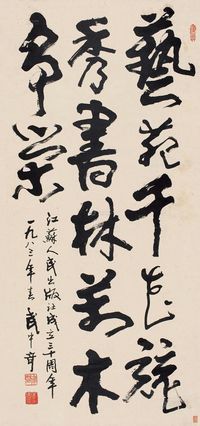 藝苑千花競
秀書林萬木
爭榮
江蘇人民出版社成立三十周年
一九八三年春 武中奇